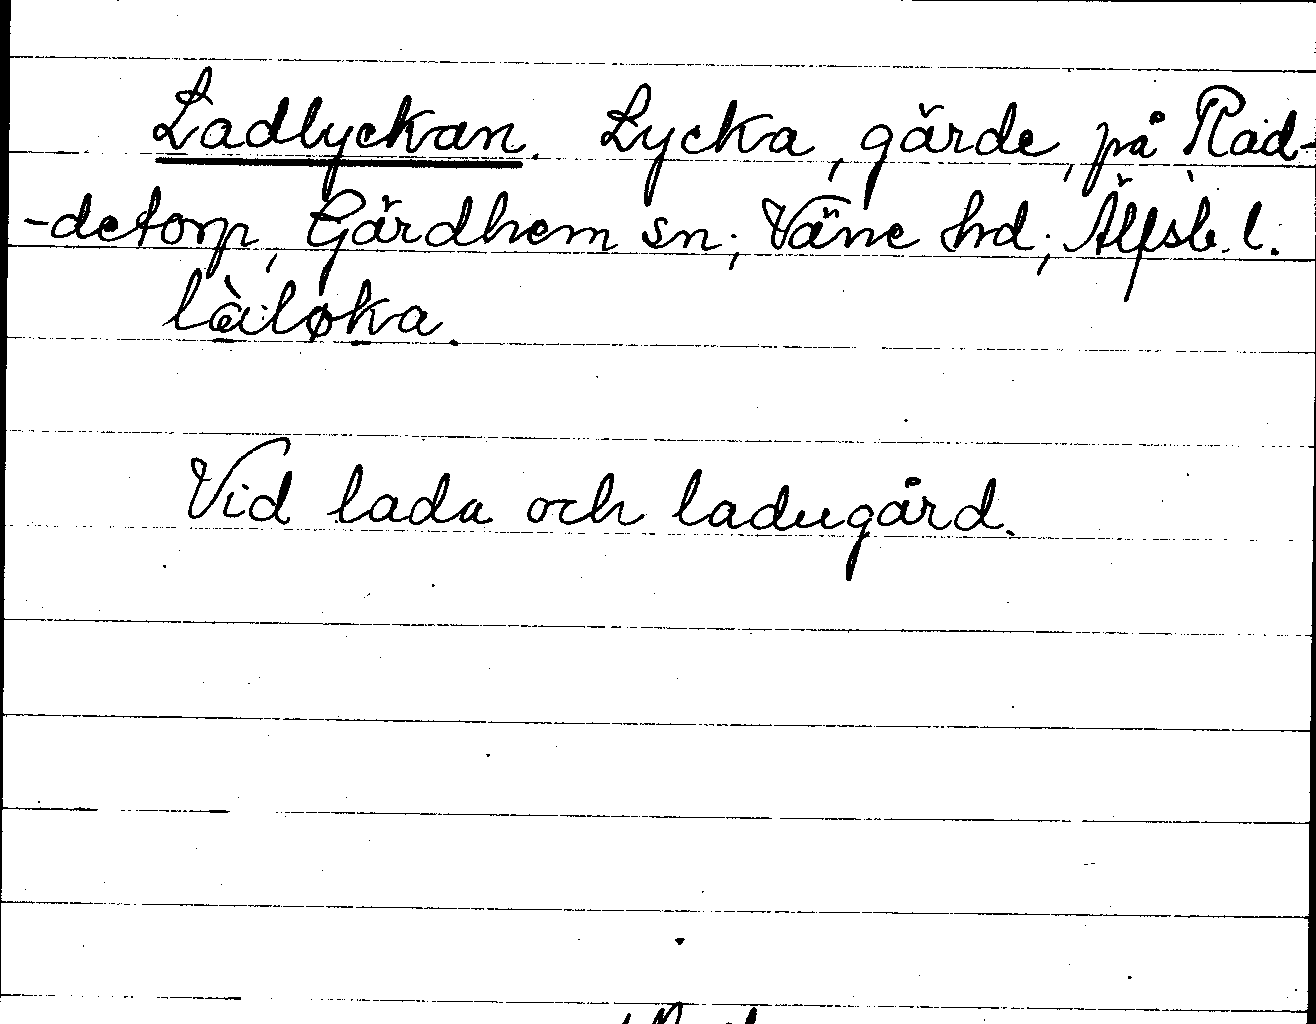 Ladlyckan. Lycka, gärde, på Rad-
-detorp, Gärdhem sn; Väne hd; Älfsb. l.
làːløka.
Vid lada och ladugård.